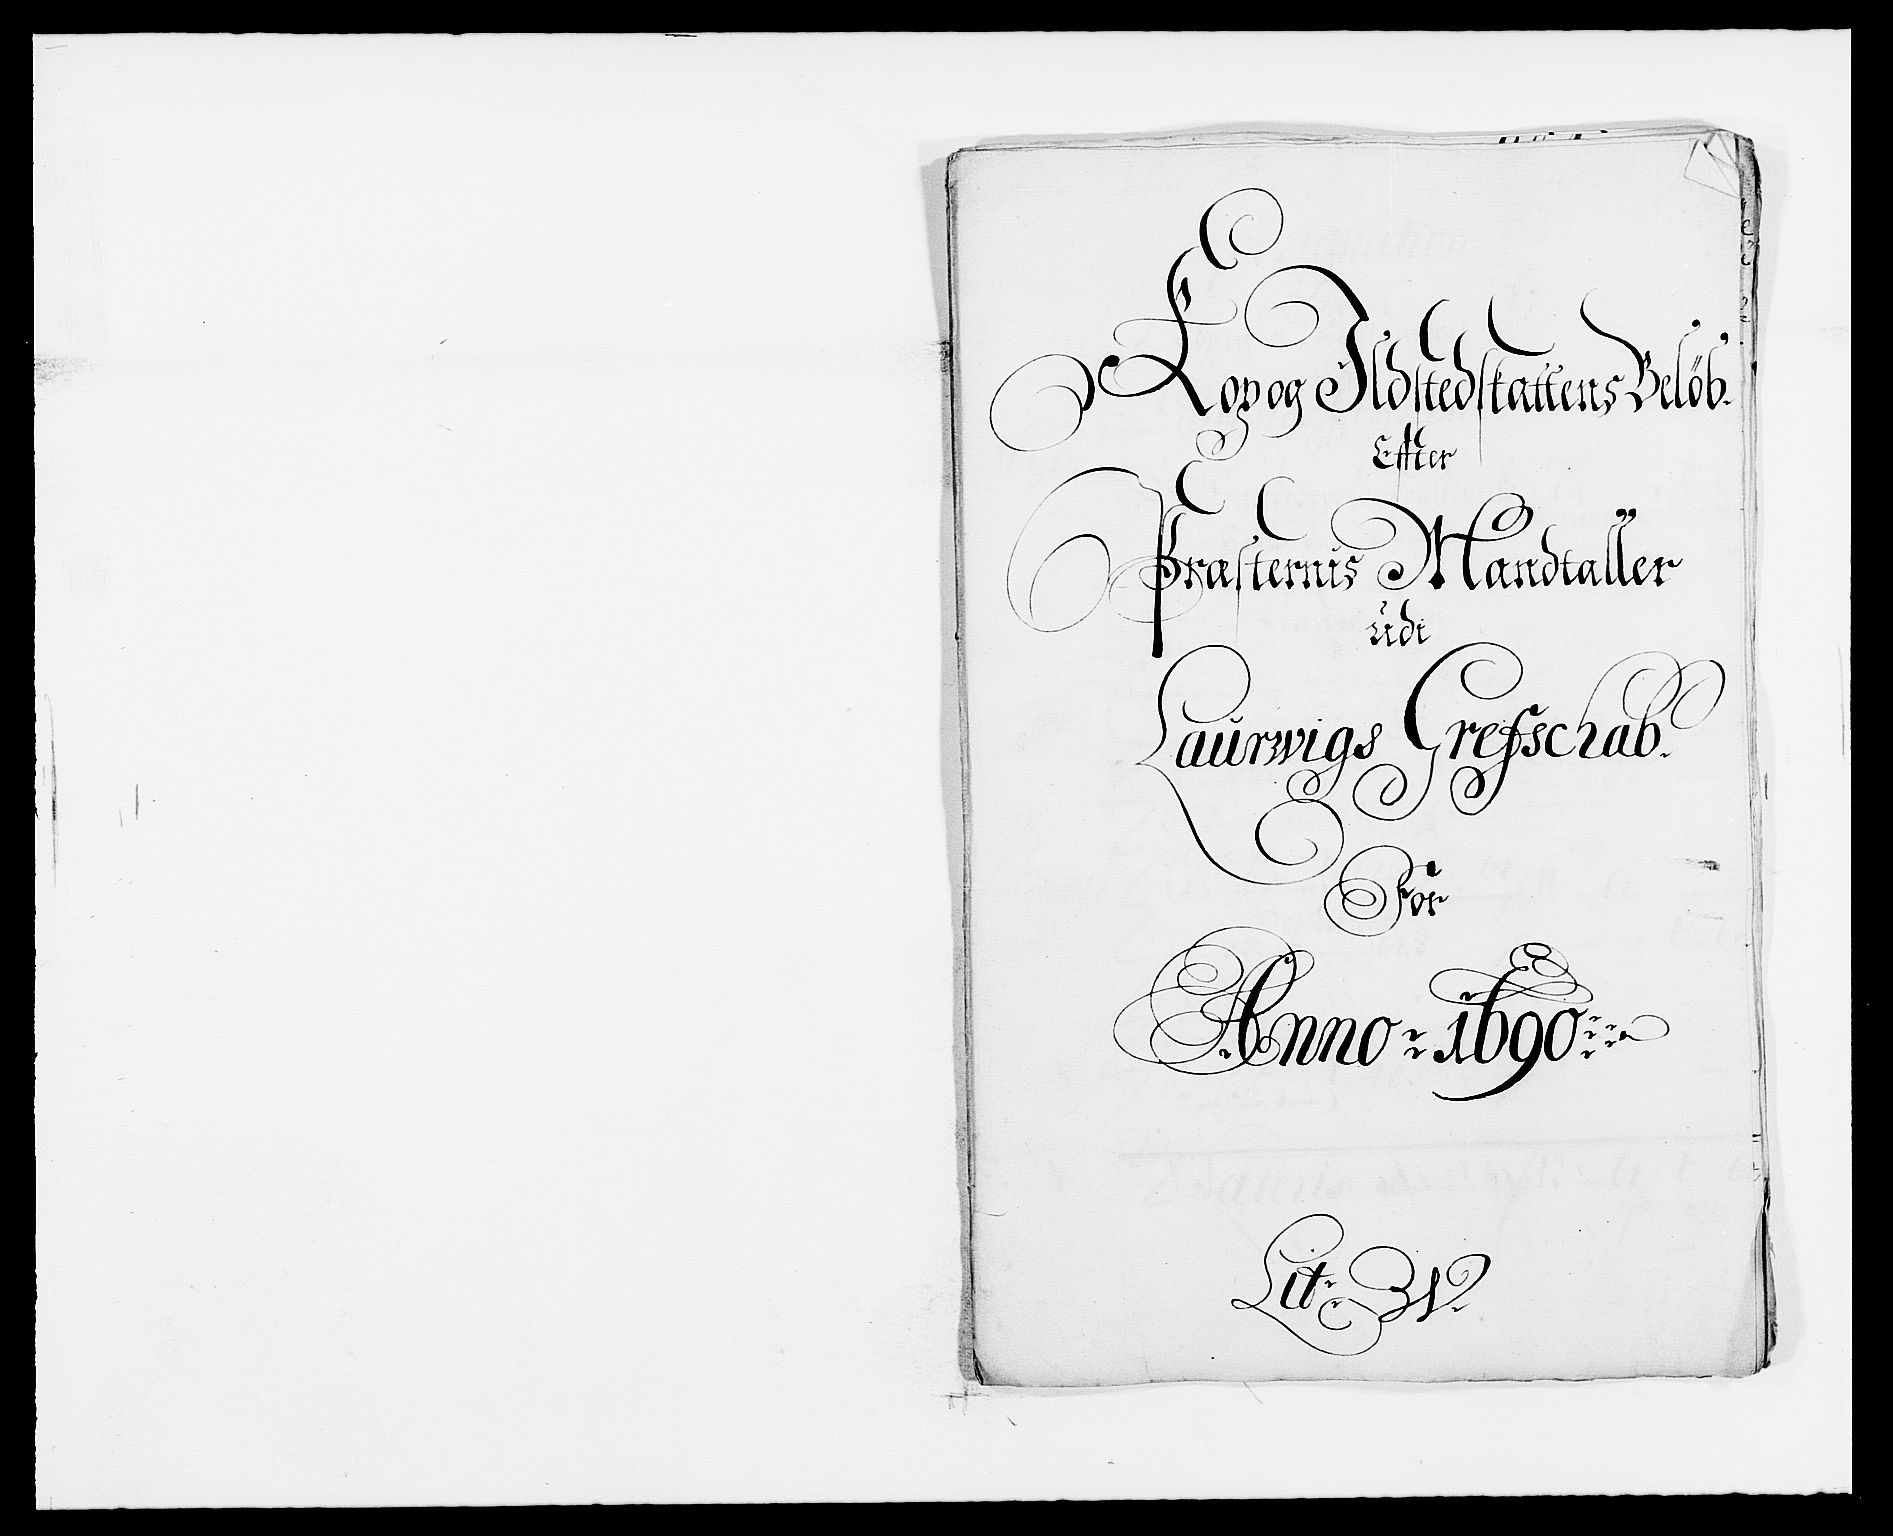 Kop og Ildstedskattens Belöb.
Effter
Præsternis Mandtaller
udi
Laurwigs Grefschab.
For
Anno 1690
Lit: